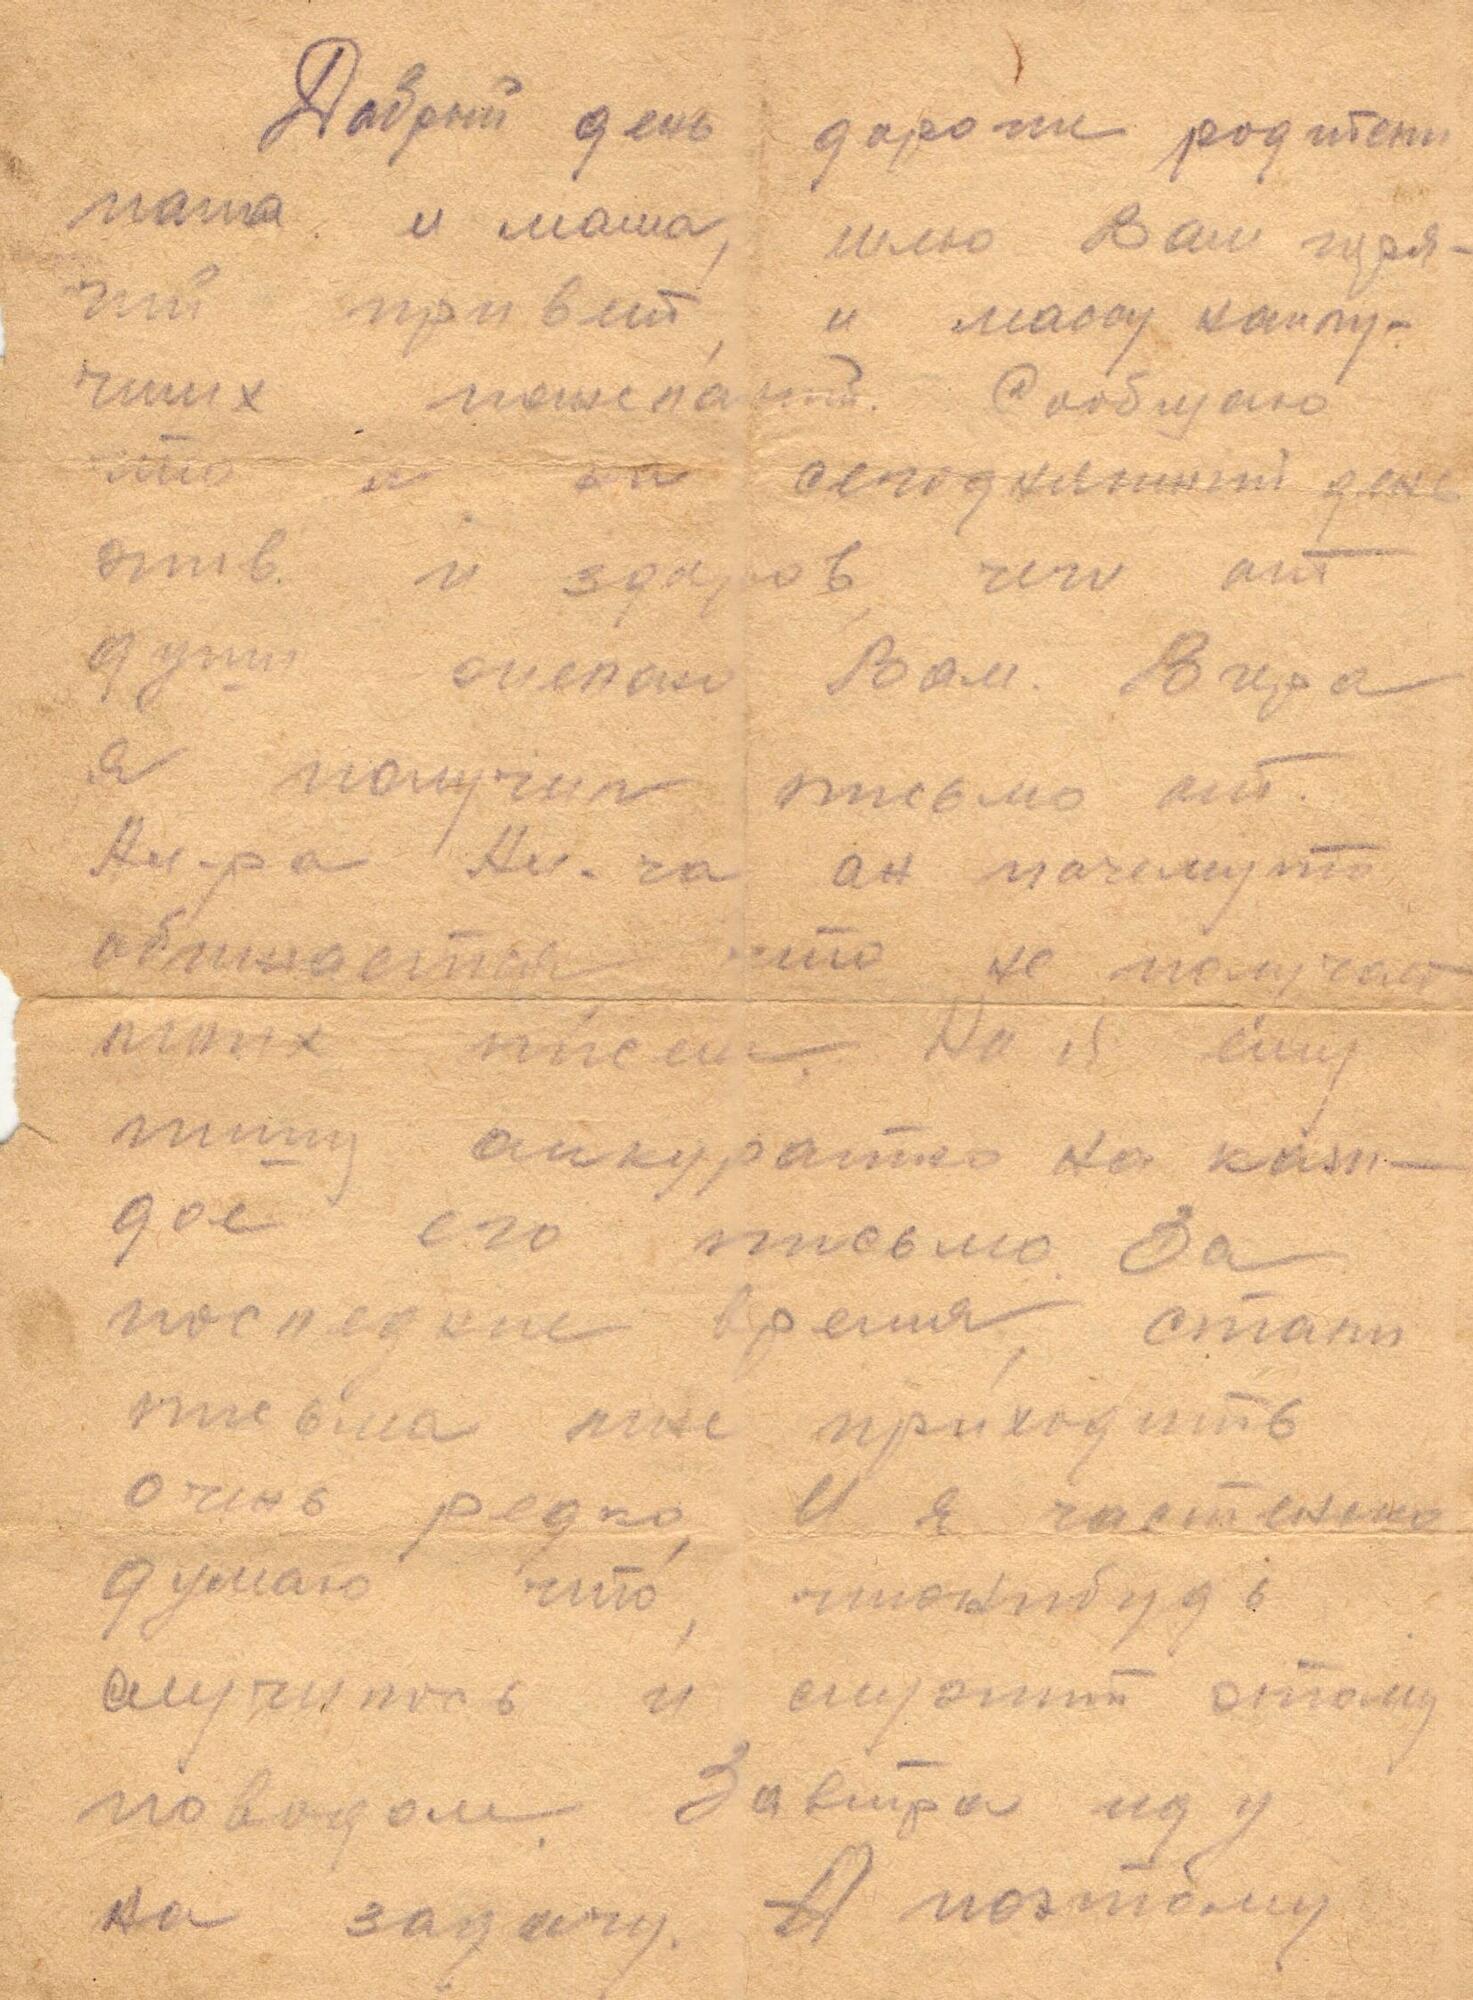 Добрый день дорогие родители
папа и мама, шлю Вам горя-
чий привет, и массу наилу-
чших пожеланий. Сообщаю
что я на сегодняшний день
жив и здоров, чего от
души желаю Вам. Вчера
я получил письмо от
Ал-ра Ал-ча он почемуто
обижается что не получает
моих писем. Но я ему
пишу аккуратно на каж-
дое его письмо. За
последние время, стали
письма мне приходить
очень редко, И я частенько
думаю что, чтонибудь
случилось и служит этому
поводом. Завтра иду
на задачу. А поэтому